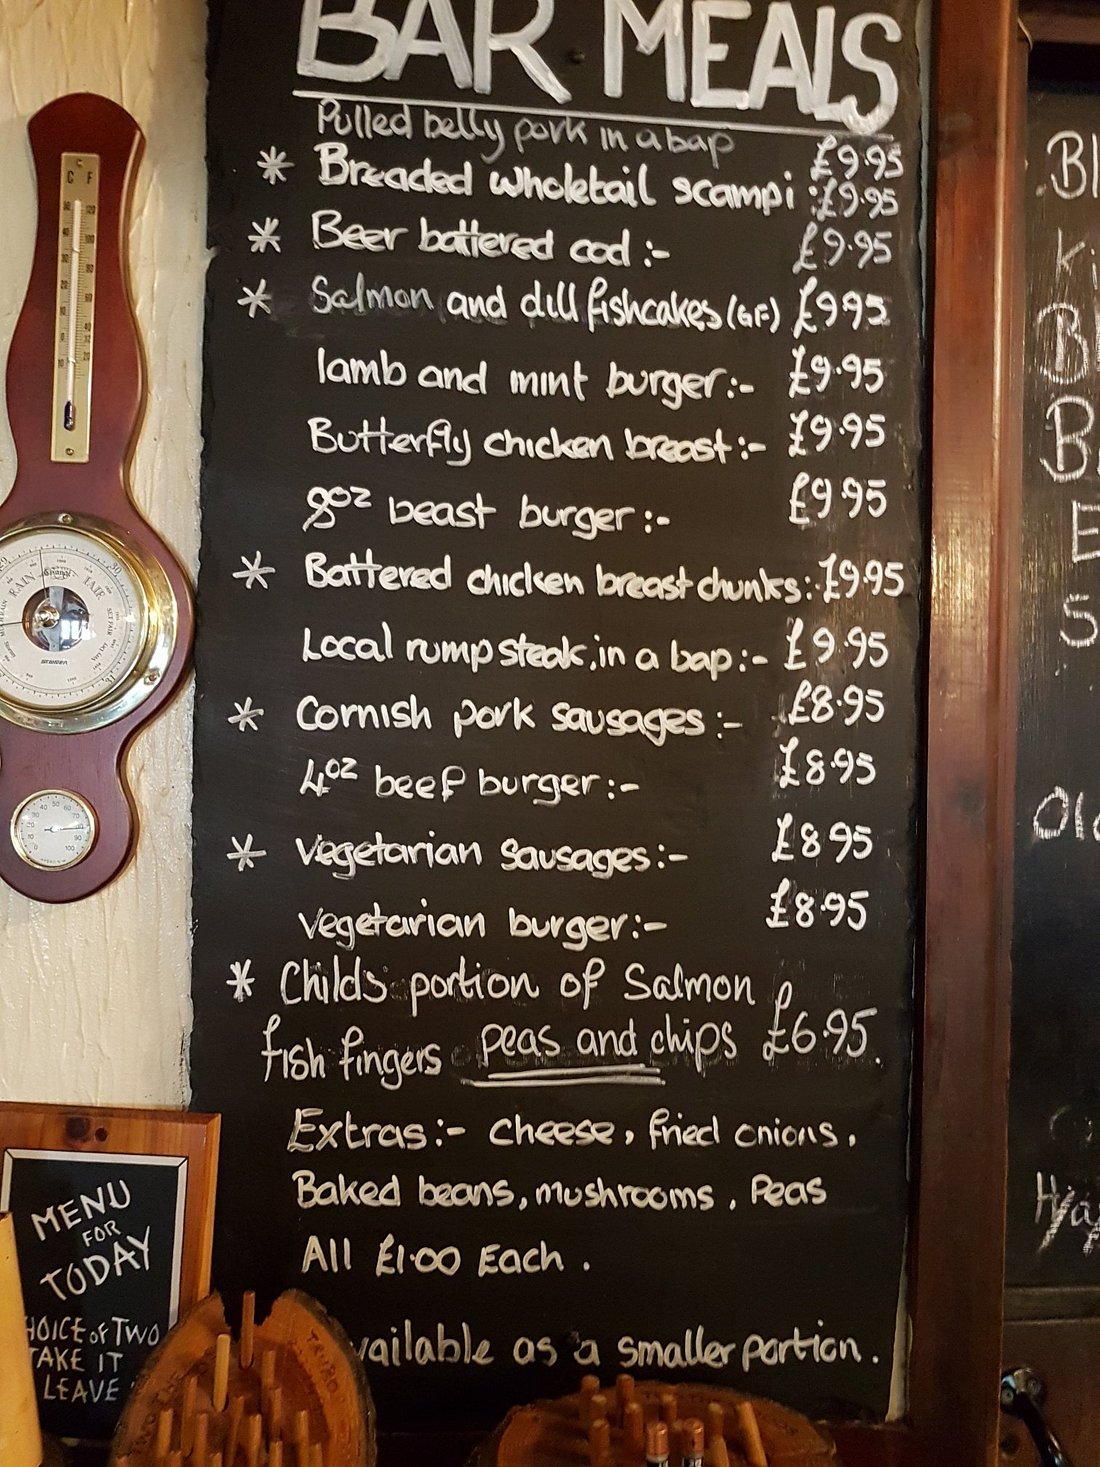 BAR MEALS
Pulled belly pork in a bap £9.95
* Breaded wholetail scampi :£9.95
* Beer battered cod :- £9.95
* Salmon and dill fishcakes (GF) £9.95
lamb and mint burger:- £9.95
Butterfly chicken breast:- £9.95
8oz beast burger :- £9.95
* Battered chicken breast chunks:- £9.95
Local rump steak, in a bap :- £9.95
* Cornish pork sausages :- £8.95
4oz beef burger :- £8.95
* Vegetarian sausages :- £8.95
vegetarian burger:- £8.95
* Childs portion of Salmon
fish fingers peas and chips £6.95.
Extras:- cheese, fried onions,
Baked beans, mushrooms, Peas
All £1.00 Each .
vailable as a smaller portion.
C F
RAIN FAIR
MENU
FOR
TODAY
HOICE of TWO
TAKE IT
LEAVE
Bl
Ki
Bl
B
E
S
Old